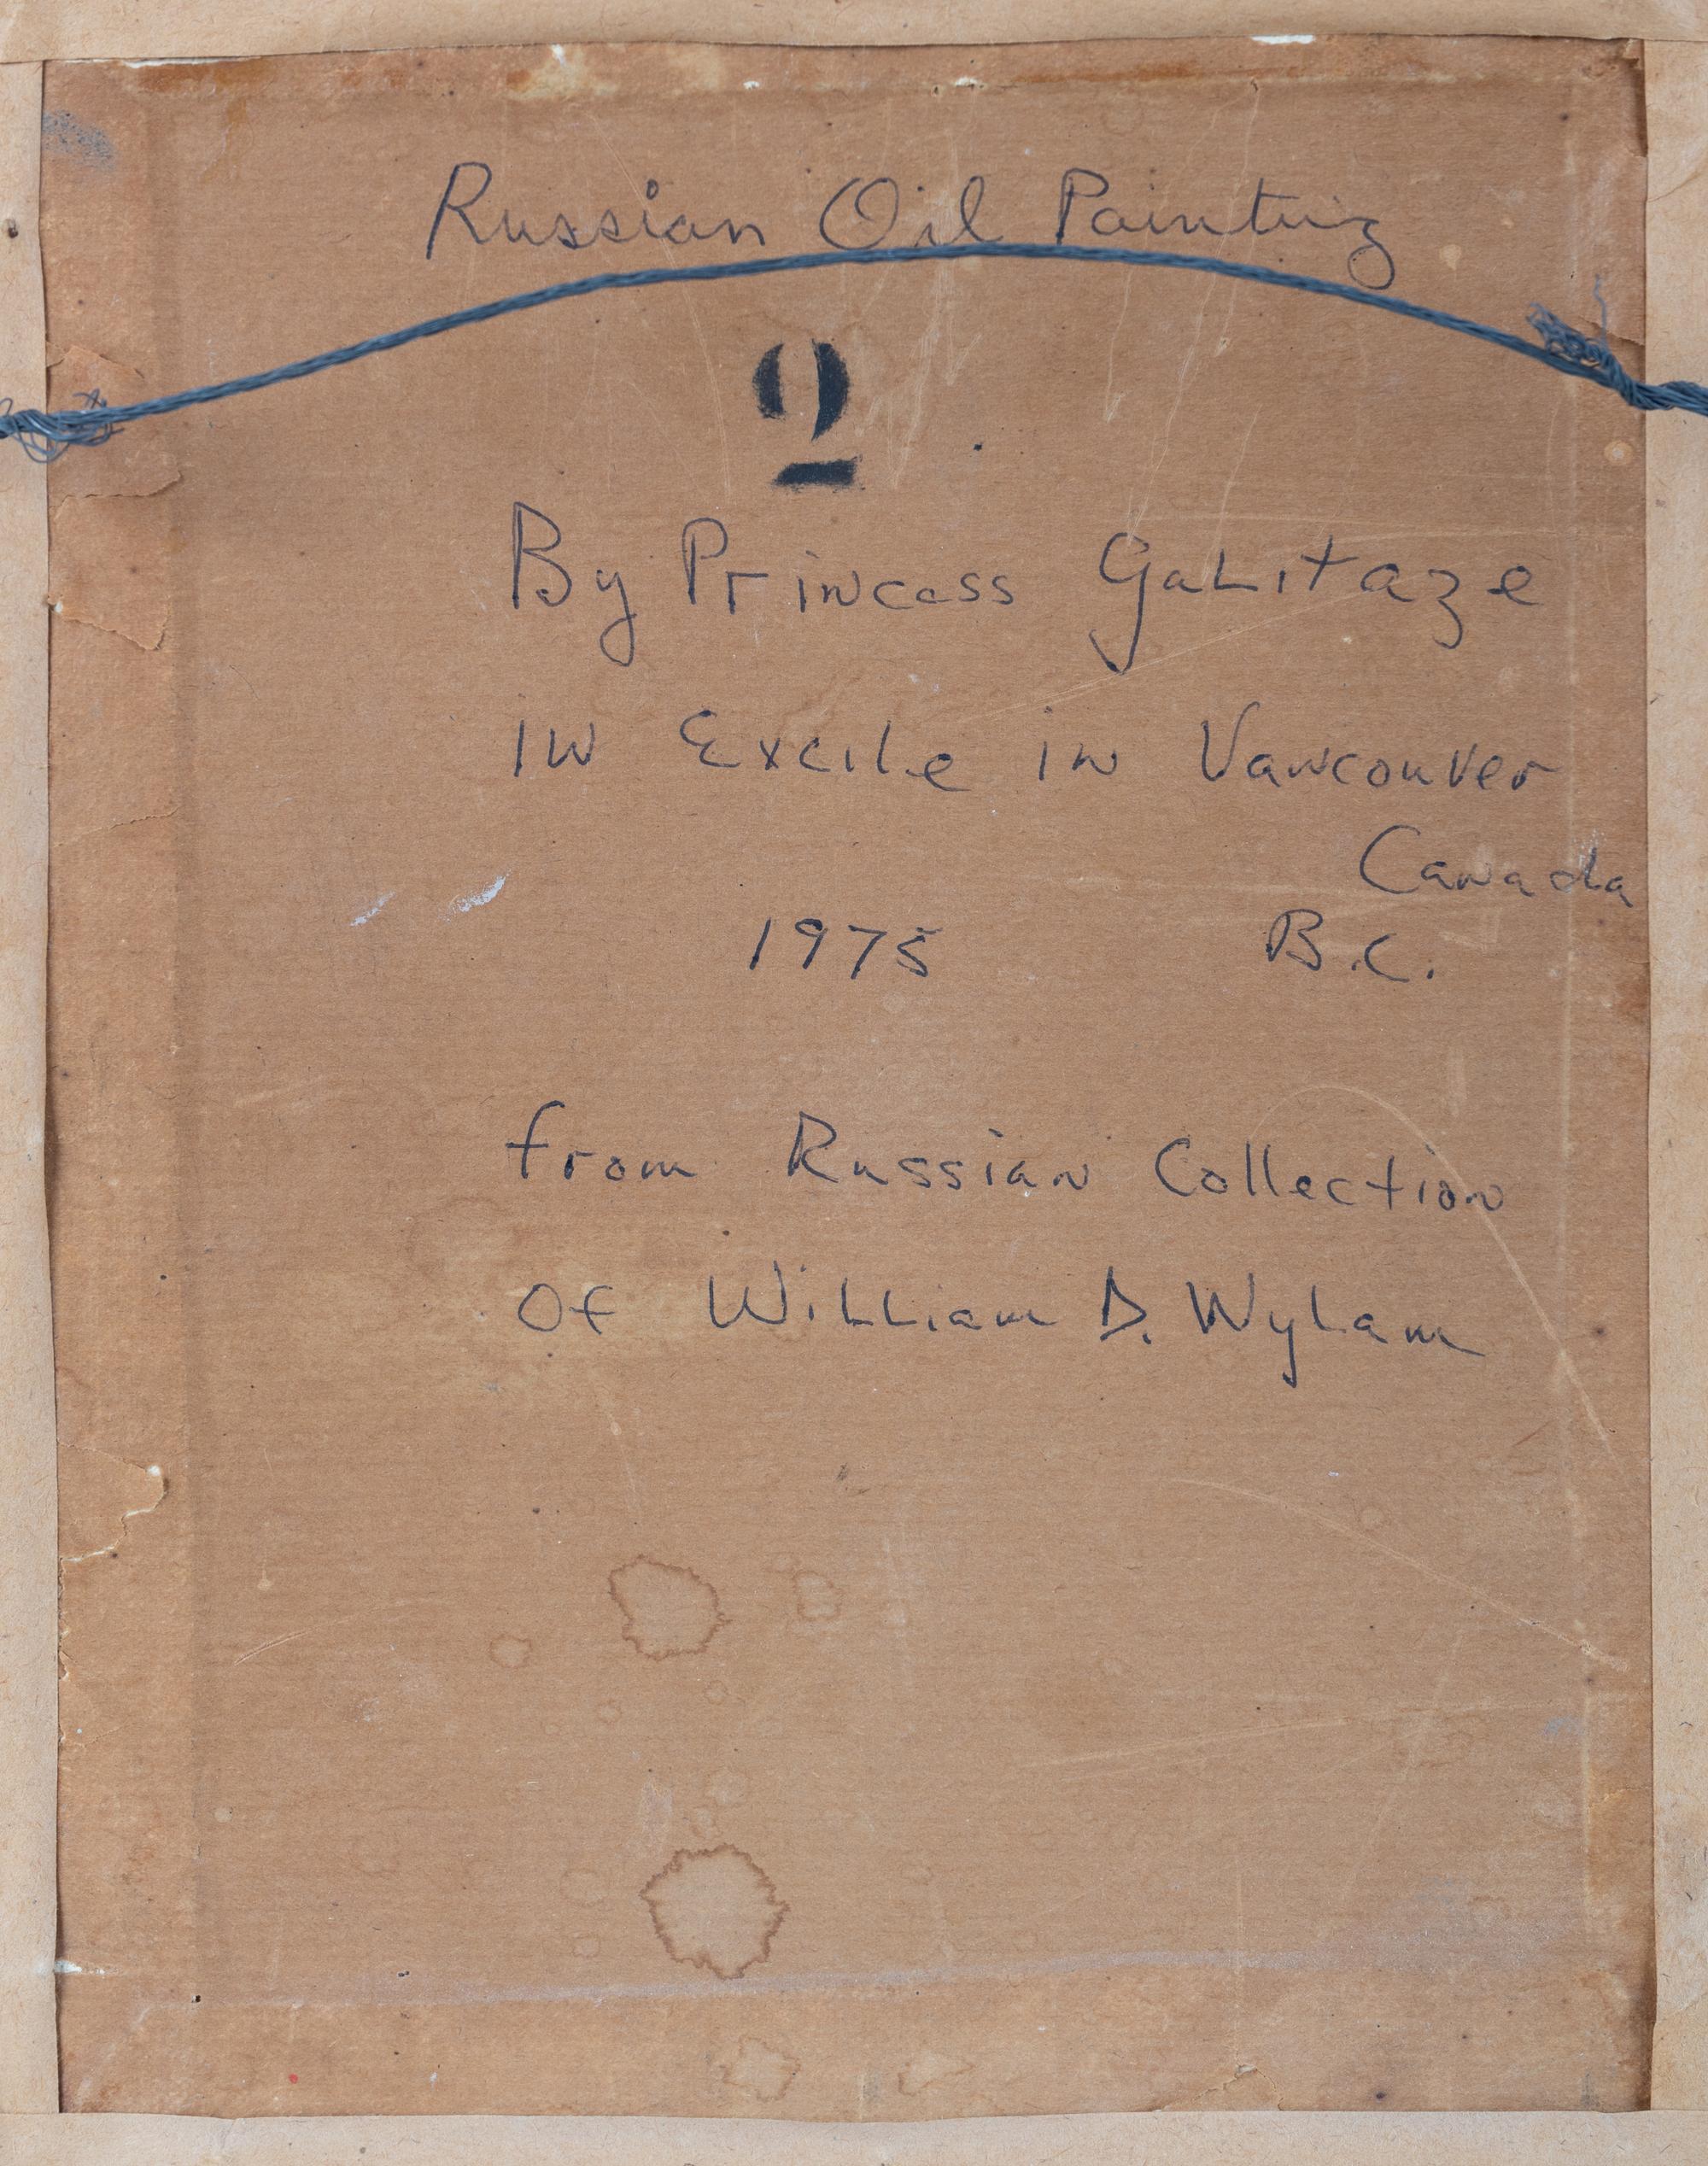 Russian Oil Painting
2
By Princess Galitaze
in Excile in Vancouver
Canada
1975 B.C.
from Russian Collection
of William D. Wylam